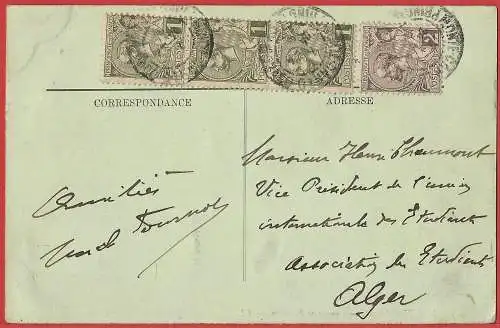 1 1 1 2
CORRESPONDANCE
ADRESSE
Monsieur Henri Chaumont
Vice Président de l'union
internationale des Etudiants
Association des Etudiants
Alger
Amitiés